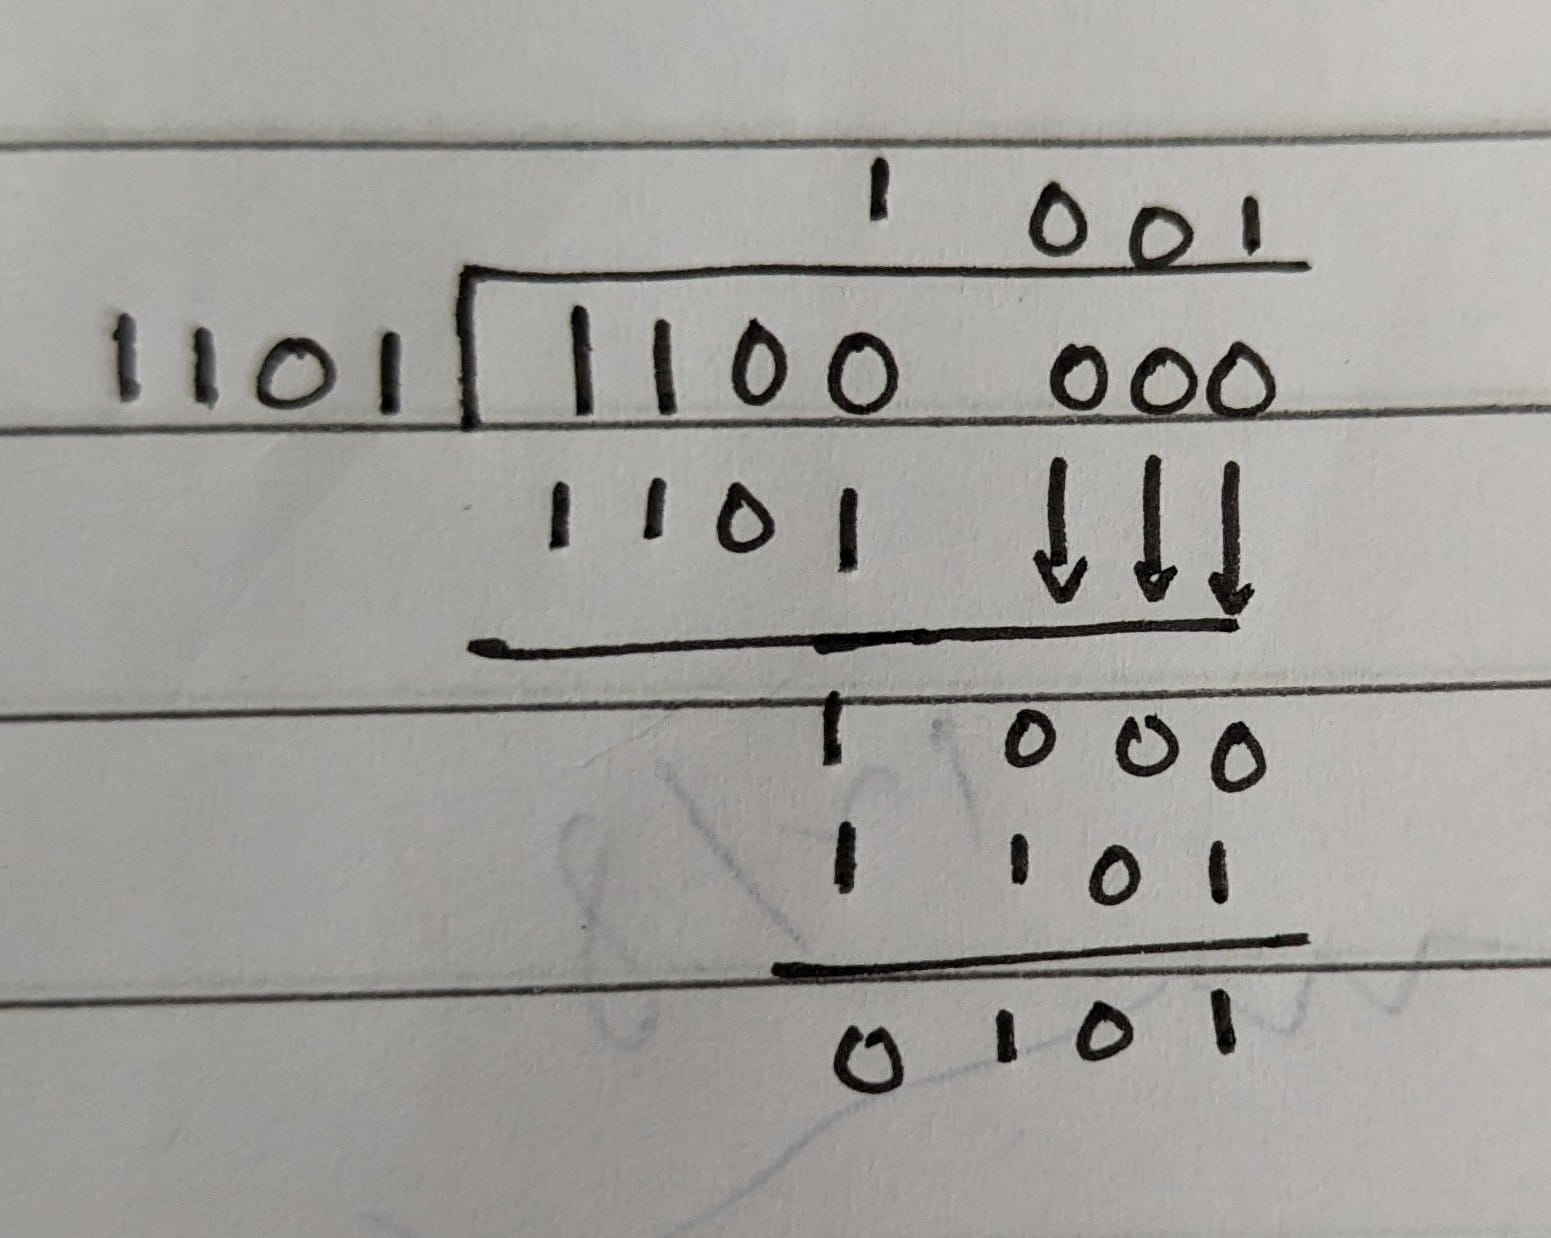 1 001
1101 1100 000
1101
1 000
1 101
0 101